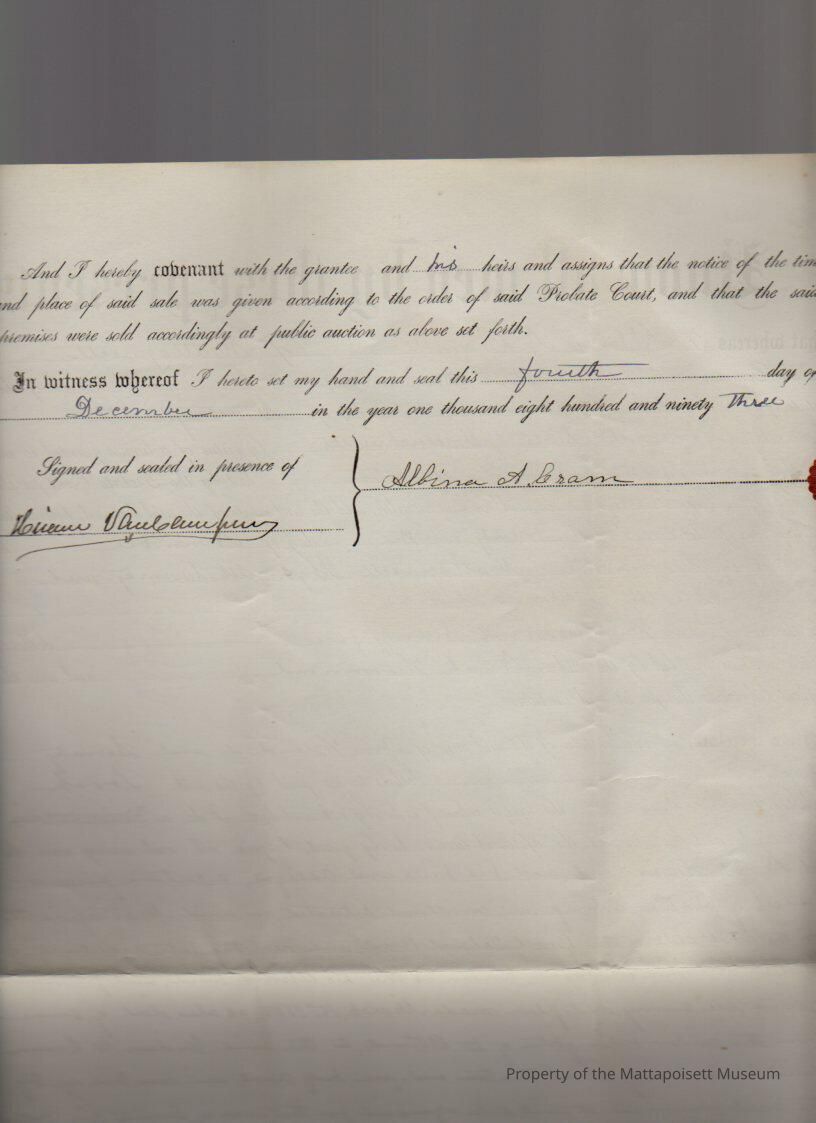 And I hereby covenant with the grantee and his heirs and assigns that the notice of the tim
nd place of said sale was given according to the order of said Probate Court, and that the said
premises were sold accordingly at public auction as above set forth.
In witness whereof I hereto set my hand and seal this fourth day of
December in the year one thousand eight hundred and ninety three
Signed and sealed in presence of
Albina A. Cram
Hiram VanCampen
Property of the Mattapoisett Museum